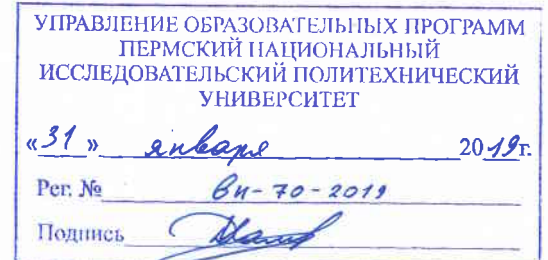 УПРАВЛЕНИЕ ОБРАЗОВАТЕЛЬНЫХ ПРОГРАММ
ПЕРМСКИЙ НАЦИОНАЛЬНЫЙ
ИССЛЕДОВАТЕЛЬСКИЙ ПОЛИТЕХНИЧЕСКИЙ
УНИВЕРСИТЕТ
«31» января 2019г.
Рег. № вн-70-2019
Подпись